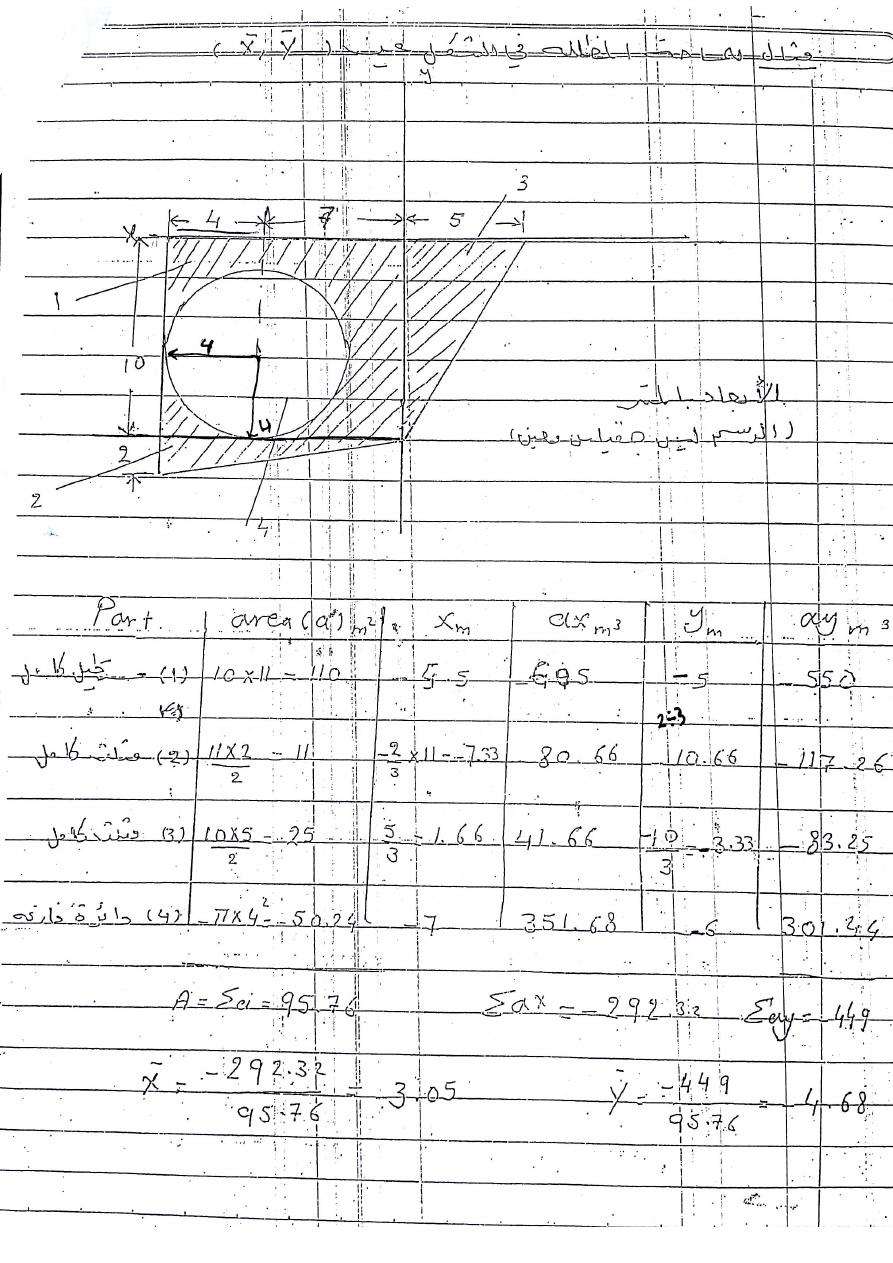 مثال مساحة المظلله في الشكل عين ( x̄, ȳ )
y
3
4 7 5
x
1
4
10
4
الأبعاد بالمتر
(الرسم ليس بمقياس معين)
2
2
4
Part area (a) m² x m ax m³ y m ay m³
(1) مستطيل كامل 10×11 = 110 - 5.5 - 605 - 5 - 550
2÷3
(2) مثلث كامل 11×2/2 = 11 -2/3 ×11 = -7.33 80.66 -10.66 -117.26
(3) مثلث كامل 10×5/2 = 25 5/3 = 1.66 41.66 -10/3 = -3.33 -83.25
(4) دائرة فارغه -π×4² = -50.24 -7 351.68 -6 301.44
A = Σai = 95.76 Σax = -292.32 Σay = -449
x̄ = -292.32/95.76 = - 3.05 ȳ = -449/95.76 = - 4.68